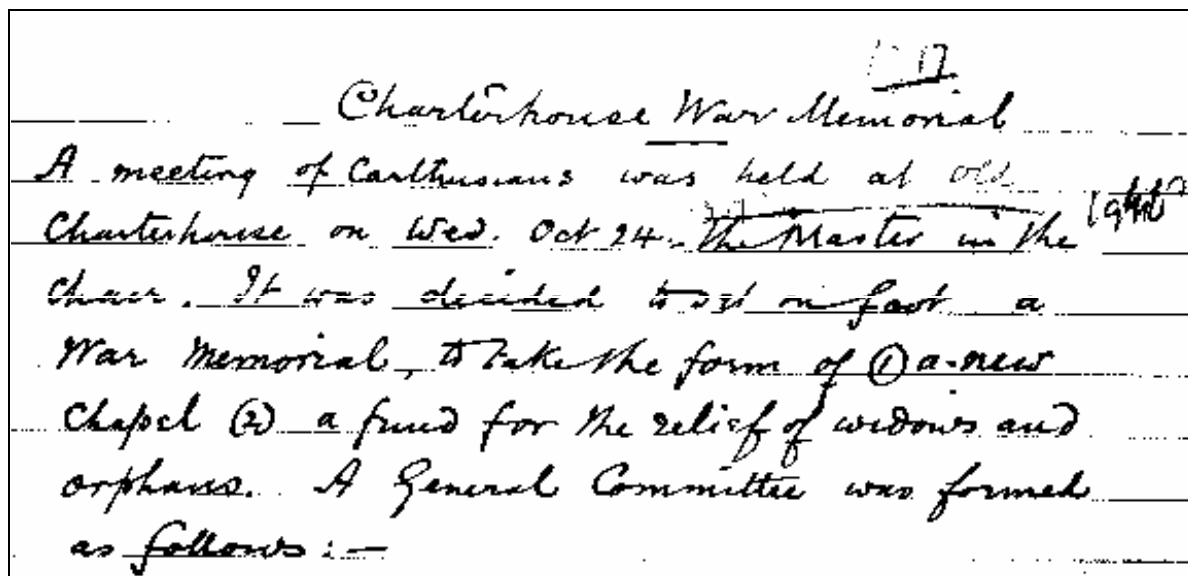 Charterhouse War Memorial
A meeting of Carthusians was held at Old
Charterhouse on Wed. Oct 24. The Master in the
Chair. It was decided to set on foot a
War Memorial, to take the form of ① a new
Chapel (2) a fund for the relief of widows and
orphans. A General Committee was formed
as follows :—